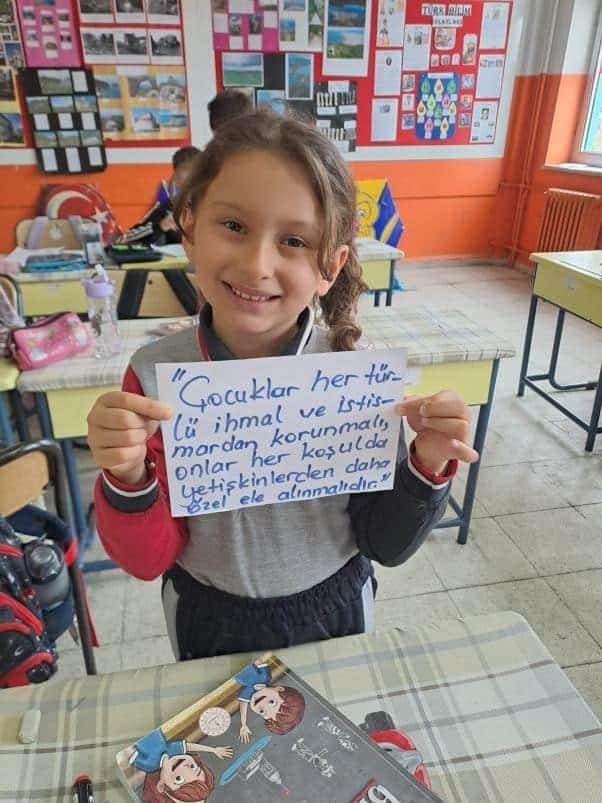 TÜRK BİLİM
"Çocuklar her tür-
lü ihmal ve istis-
mardan korunmalı,
onlar her koşulda
yetişkinlerden daha
özel ele alınmalıdır."